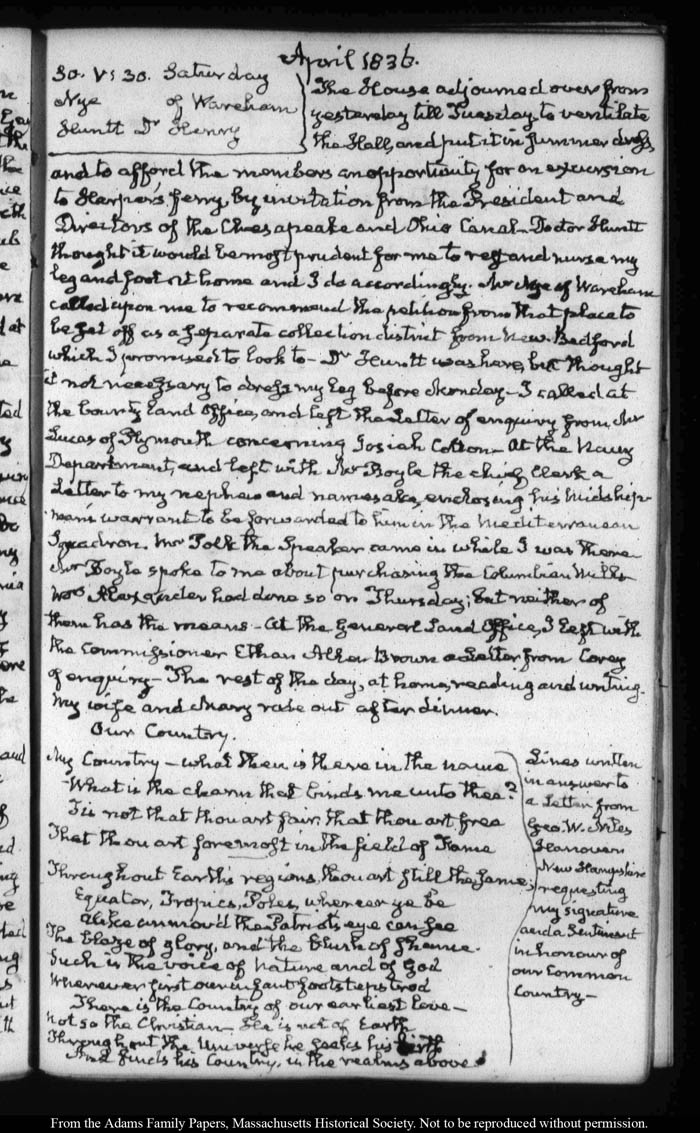 April 1836.
30. V:30. Saturday
Nye of Wareham
Huntt Dr Henry
The House adjourned over from
yesterday till Tuesday to ventilate
the Hall, and put it in Summer dress,
and to afford the members an opportunity for an excursion
to Harper's ferry, by invitation from the President and
Directors of the Chesapeake and Ohio Canal. Doctor Huntt
thought it would be most prudent for me to rest and nurse my
leg and foot at home and I do accordingly. Mr Nye of Wareham
called upon me to recommend the petition from that place to
be set off as a separate collection district from New-Bedford
which I promised to look to— Dr Huntt was here, but thought
it not necessary to dress my leg before Monday— I called at
the bounty Land Office, and left the Letter of enquiry from Mr
Lucas of Plymouth concerning Josiah Cotton— At the Navy
Department, and left with Mr Boyle the chief Clerk a
Letter to my nephew and namesake, enclosing his Midship-
man's warrant to be forwarded to him in the Mediterranean
Squadron. Mr Polk the Speaker came in while I was there
Mr Boyle spoke to me about purchasing the Columbian Mills
Alexander had done so on Thursday; but neither of
them has the means— At the General Land Office, I left with
the Commissioner Ethan Allen Brown a Letter from
of enquiry— The rest of the day, at home, reading and writing.
My wife and Mary rode out after dinner.
Our Country.
My Country—what then is there in the name
What is the charm that binds me unto thee?
Tis not that thou art fair, that thou art free
That thou art foremost in the field of Fame
Throughout Earth's regions, thou art still the same;
Equator, Tropics, Poles, wherever ye be
Alike unmov'd the Patriot's eye can see
The blaze of glory, and the blush of shame.
Such is the voice of nature and of God
Wherever first our infant footsteps trod
There is the Country of our earliest love—
Not so the Christian— He is not of Earth
Throughout the Universe he seeks his birth
And finds his Country, in the realms above.
Lines written
in answer to
a Letter from
Geo. W. Niles
Hanover
New Hampshire
requesting
my signature
and a Sentiment
in honour of
our Common
Country—
From the Adams Family Papers, Massachusetts Historical Society. Not to be reproduced without permission.